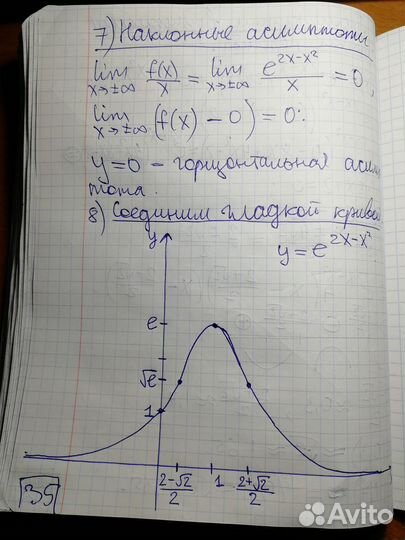 7) Наклонные асимптоты
lim x→±∞ f(x)/x = lim x→±∞ e^(2x-x²)/x = 0,
lim x→±∞ (f(x) - 0) = 0:
y=0 - горизонтальная асим
птота.
8) Соединим гладкой кривой
y = e^(2x-x²)
y
e
√e
1
(2-√2)/2 1 (2+√2)/2
35
Avito